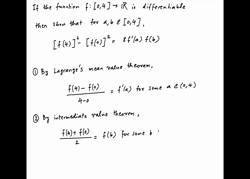 If the function f: [0,4] → ℝ is differentiable
then show that for a, b ∈ [0,4],
[f(4)]² - [f(0)]² = 8f'(a) f(b)
① By Lagrange's mean value theorem,
f(4) - f(0) / 4-0 = f'(a) for some a ∈ (0,4)
② By intermediate value theorem,
f(4) + f(0) / 2 = f(b) for some b